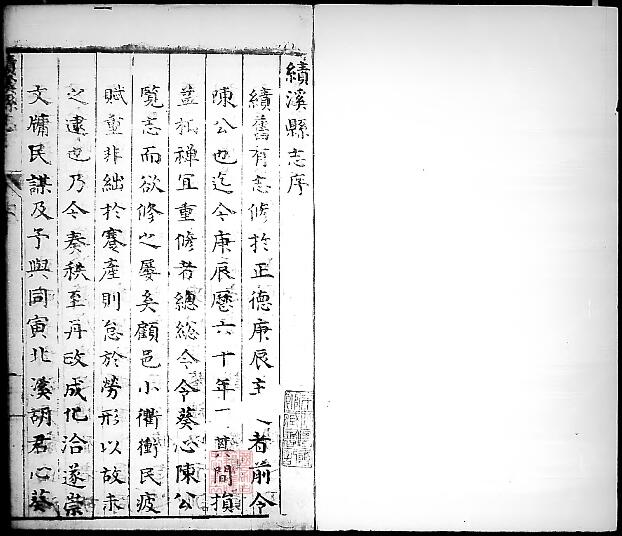 績溪縣志序
績舊有志修於正德庚辰主 者前令
陳公也迄今庚辰曆六十年 其間損
益杌禪宜重修者總總令令葵心陳公
覽志而欲修之屡矣顧邑小衢衝民疲
賦重非絀於蹇產則怠於勞形以故未
之逮也乃今奏秩至再政成化洽遂崇
文牖民謀及予與同寅北溪胡君心葵